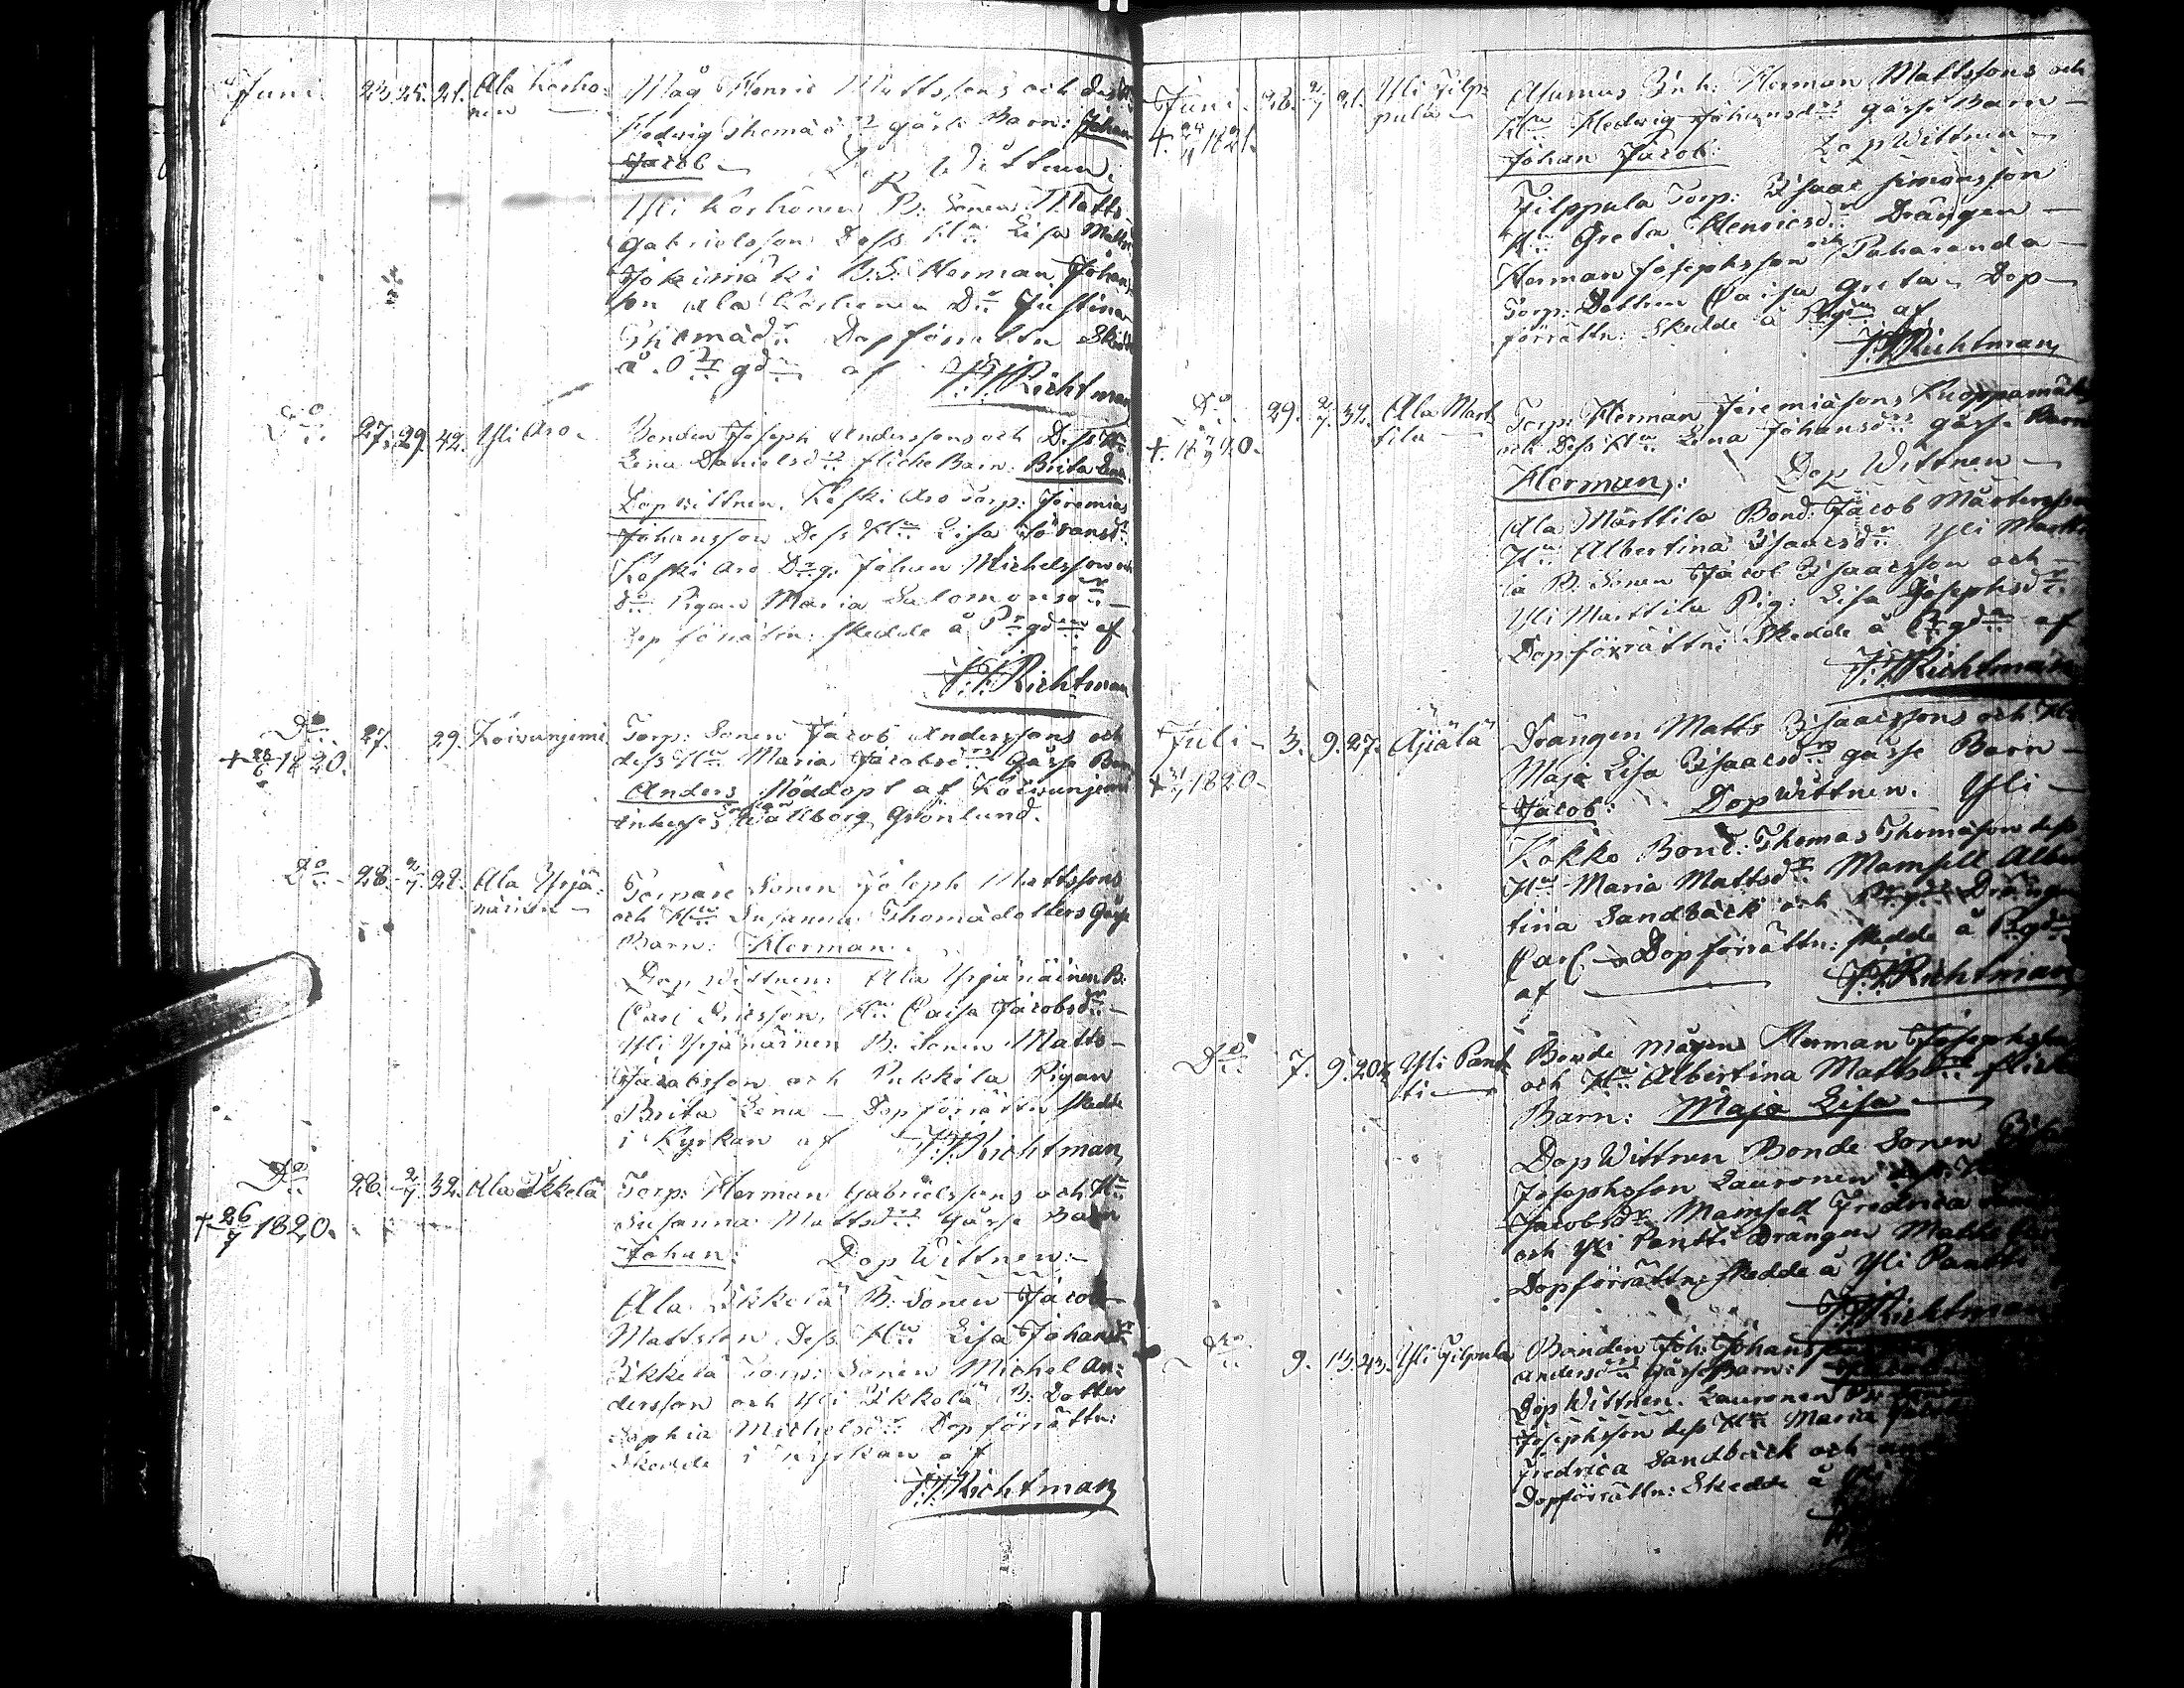 Juni 23. 25. 21. Ala Korho: Måg Henric Mattssons och dess
nen Hedvig Thomæd:rs gåsse Barn: Johan
Jacob Dop Wittnen:
Yli Korhonen B: Sonen Matts
Gabrielsson Dess H:u Lisa Matts
Jokimäki B.S. Herman Johans
son Ala Korhonen D:r Justina
Thomæd:r Dopförrättn Skedde
å P:r gd:n af
J:J:Richtman
D:o 27. 29. 42. Yli Aro Bonden Joseph Anderssons och Dess H:u
Lena Danielsd:rs flicke Barn: Brita Lena
Dop Wittnen. Koski Aro Torp: Jeremias
Johansson Dess H:u Lisa
Koski Aro D:g: Johan Michelsson och
d:o Pigan Maria Salomonsd:r
Dop förrättn: skedde å P:r gd:n af
J:J:Richtman
D:o 27. 29. Koivunjemi Torp: Sonen Jacob Anderssons och
+ 28/6 1820. dess H:u Maria Jacobsd:rs Gåsse Barn
Anders Nöddopt af Koivunjemi
Enkefru Wallborg Grönlund.
D:o 28. 2/7. 28. Ala Yrjä: Torpare Sonen Joseph Mattssons
näinen och H:u Susanna Thomædotters Gåsse
Barn: Herman:
Dop Wittnen: Ala Yrjänäinen B:
Carl Ericsson, H:u Caisa Jacobsd:r
Yli Yrjänäinen B: Sonen Matts
Jacobsson och Pukkila Pigan
Brita Lena Dop förrättn skedde
i Kyrkan af J:J:Richtman
D:o 28. 2/7. 32. Ala Ikkelä Torp: Herman Gabrielssons och H:u
+ 26/7 1820. Susanna Mattsd:rs Gåsse Barn
Johan: Dop Wittnen:
Ala Ikkelä B: Sonen Jacob
Mattsson Dess H:u Lisa Johansd:r
Ikkelä Torp: Sonen Michel An:
dersson och Yli Ikkelä B: Dotter
Sophia Michelsd:r Dopförrättn:
Skedde i Kyrkan af
J:J:Richtman
Juni 28. 2/7 21. Yli Filp: Alumus Inh: Herman Mattssons och
pula H:u Hedwig Johansd:rs gåsse Barn
1821. Johan Jacob: Dop Wittnen
Filppula Torp: Isaac Simonsson
H:u Greta Henricsd:r Drängen
Herman Josephsson och Paharanda
Torp: Dottren Caisa Greta Dop
förrättn: Skedde å P:gd:n af
J:J:Richtman
D:o 29. 2/7. 34. Ala Mart: Torp: Herman Jeremiasons Kuoppamäki
+ 1820. tila och Dess H:u Lena Johansd:rs gåsse Barn
Herman: Dop Wittnen
Ala Marttila Bond: Jacob Mårtensson
H:u Albertina Isaacsd:r Yli Martti
la B: Sonen Jacob Isaacsson och
Yli Marttila Pig: Lisa Josephsd:r
Dopförrättn: Skedde å P:r gd:n af
J:J:Richtman
Juli 3. 9. 27. Äjälä Drängen Matts Isaacssons och H:u
+ 31/7 1820. Maja Lisa Isaacsd:rs gåsse Barn
Jacob: Dop Wittnen. Yli
Kokko Bond: Thomas Thomæson dess
H:u Maria Mattsd:r Mamsell Alber
tina Sandbäck och Drängen
Carl Dopförrättn: skedde å P:r gd:n
af J:J:Richtman
D:o 7. 9. 20 Yli Pant: Bonde Mågens Herman Josephss
ti och H:u Albertina Mattsd:rs flicke
Barn: Maja Lisa
Dop Wittnen Bonde Sonen
Josephsson Lauronen dess
Jacobsd:r Mamsell Fredrica
och Yli Pantti Drängen Matts
Dopförrättn: skedde å Yli Pantti
J:J:Richtman
D:o 9. 13. 43. Yli Filpula Bonden Joh: Johans
Andersd:rs Gåsse Barn:
Dop Wittnen. Lauronen
Josephsson dess H:u Maria
Fredrica Sandbäck och
Dopförrättn: Skedde å Yli